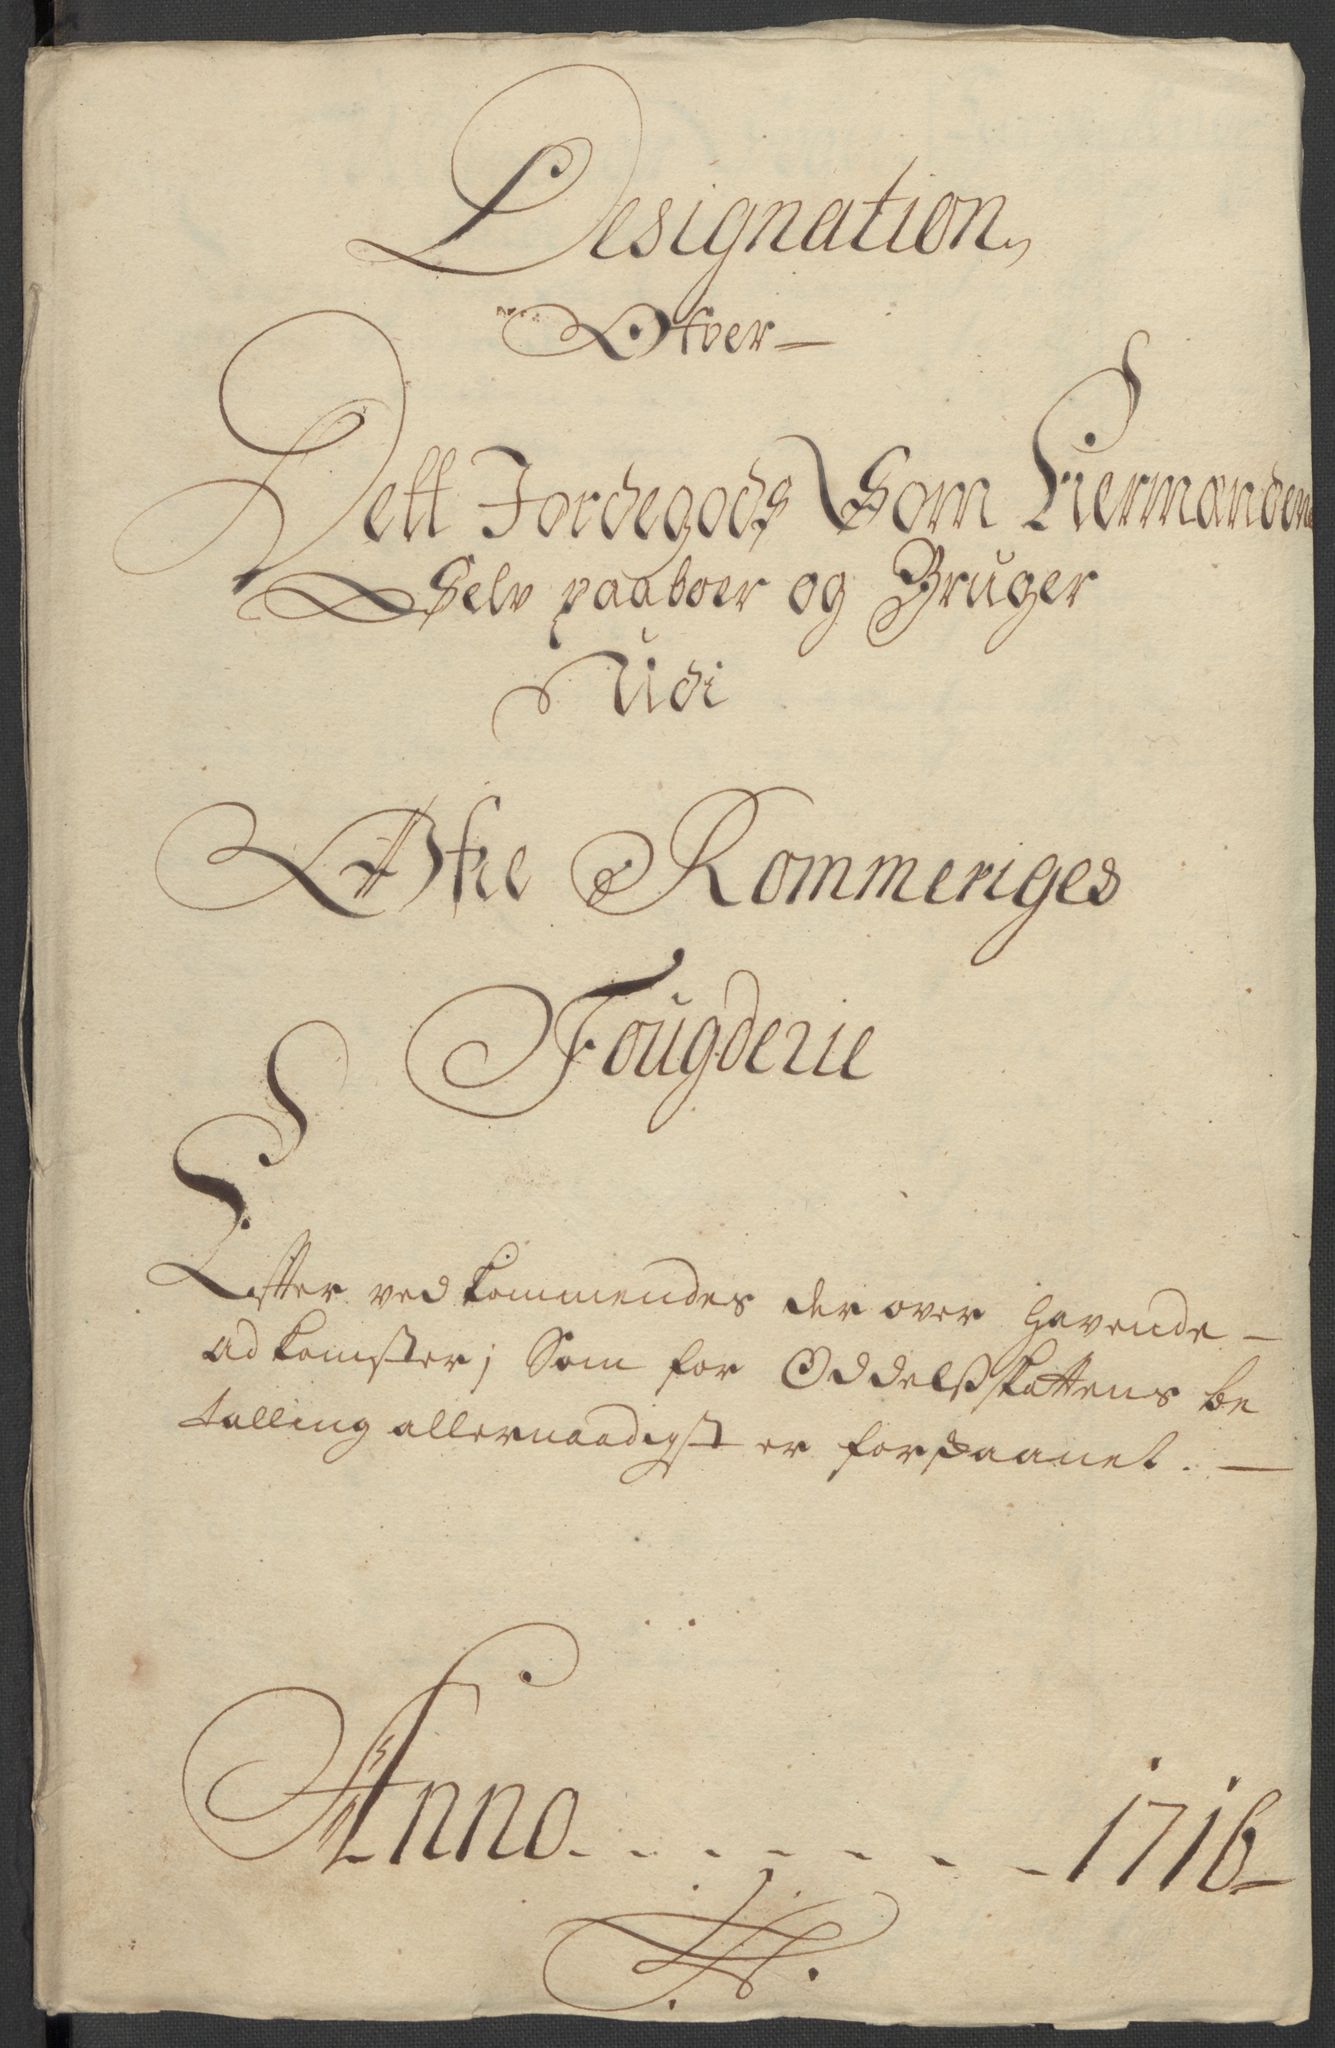 Designation
Ofver
Dett Jordegods Som
Selv paaboer og Bruger
Udi
Øfre Rommeriges
Fougderie
Efter vedkommendes der over havende
adkomster; Som for Oddelsskattens be
talling allernaadigst er forskaanet.
Anno 1716